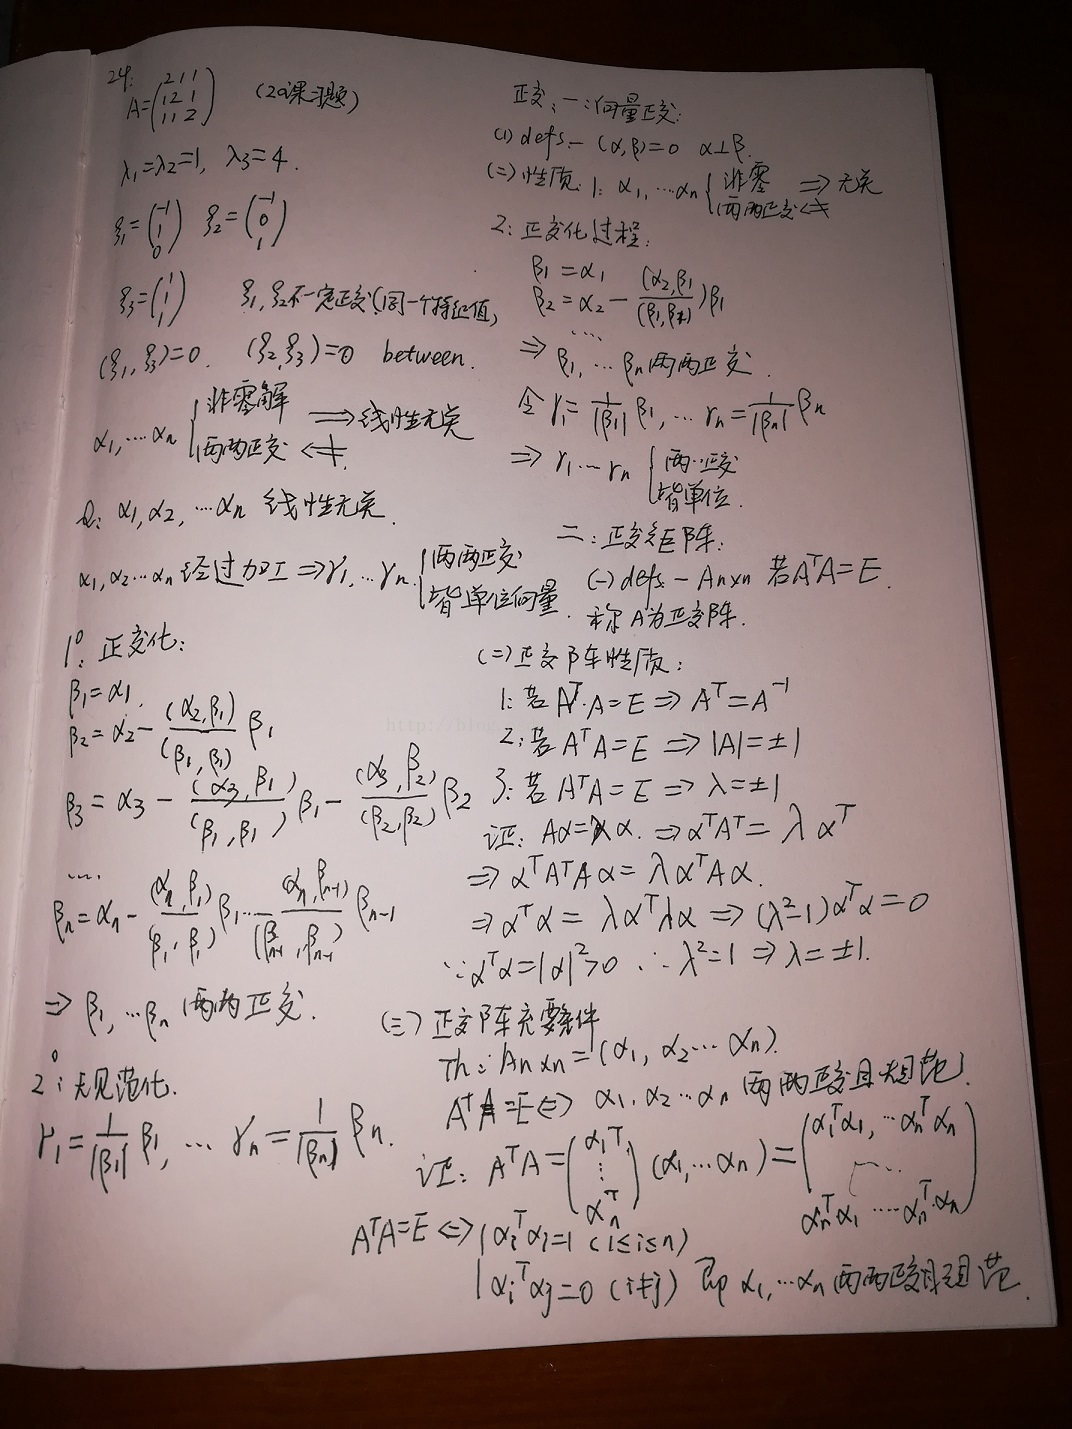 24:
A=(2 1 1
1 2 1
1 1 2) (20课习题)
λ₁=λ₂=1, λ₃=4.
ξ₁=(-1 1 0) ξ₂=(-1 0 1)
ξ₃=(1 1 1) ξ₁, ξ₂不一定正交(同一个特征值)
(ξ₁, ξ₃)=0. (ξ₂, ξ₃)=0 between.
α₁,…αₙ { 非零解 ⟹ 线性无关
两两正交 ⟸̸
Q: α₁, α₂, …αₙ 线性无关.
α₁, α₂…αₙ 经过加工 ⟹ γ₁, …γₙ { 两两正交
皆单位向量.
1°: 正交化:
β₁=α₁.
β₂=α₂-(α₂,β₁)/(β₁,β₁) β₁
β₃=α₃-(α₃,β₁)/(β₁,β₁) β₁-(α₃,β₂)/(β₂,β₂) β₂
……
βₙ=αₙ-(αₙ,β₁)/(β₁,β₁) β₁…(αₙ,βₙ₋₁)/(βₙ₋₁,βₙ₋₁) βₙ₋₁
⟹ β₁, …βₙ 两两正交.
2°: 规范化.
γ₁=1/|β₁| β₁, … γₙ=1/|βₙ| βₙ.
正交、一:向量正交:
(1) defs- (α,β)=0 α⊥β.
(二)性质: 1: α₁,…αₙ { 非零 ⟹ 无关
两两正交 ⟸̸
2: 正交化过程:
β₁=α₁
β₂=α₂-(α₂,β₁)/(β₁,β₁) β₁
……
⟹ β₁, …βₙ 两两正交.
令 γ₁=1/|β₁| β₁, …γₙ=1/|βₙ| βₙ
⟹ γ₁…γₙ { 两…正交
皆单位.
二: 正交矩阵:
(一) defs- Aₙₓₙ 若AᵀA=E.
称A为正交阵.
(二)正交阵性质:
1: 若Aᵀ·A=E ⟹ Aᵀ=A⁻¹
http://blog
2: 若AᵀA=E ⟹ |A|=±1
3: 若AᵀA=E ⟹ λ=±1
证: Aα=λα. ⟹ αᵀAᵀ=λαᵀ
⟹ αᵀAᵀAα=λαᵀAα.
⟹ αᵀα=λαᵀλα ⟹ (λ²-1)αᵀα=0
∵αᵀα=|α|²>0 ∴λ²=1 ⟹ λ=±1.
(三)正交阵充要条件
Th: Aₙₓₙ=(α₁, α₂…αₙ).
AᵀA=E⟺ α₁, α₂…αₙ 两两正交且规范.
证: AᵀA=(α₁ᵀ ⋮ αₙᵀ)(α₁,…αₙ)=(α₁ᵀα₁, …αₙᵀαₙ
……
αₙᵀα₁ …αₙᵀ·αₙ)
AᵀA=E ⟺ { αᵢᵀαᵢ=1 (1≤i≤n)
αᵢᵀαⱼ=0 (i≠j) 即 α₁, …αₙ 两两正交且规范.